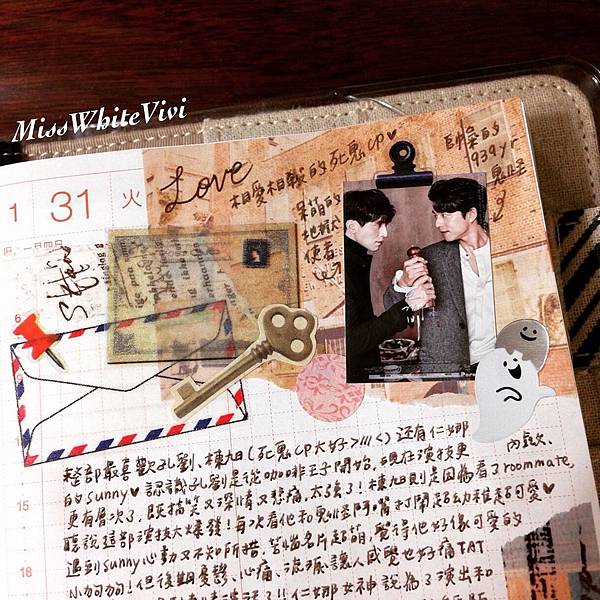 MissWhiteVivi
1 31 火
Love
相愛相殺的死鬼CP♥
帥氣的
939yr
鬼怪
呆萌的
地獄
使者
6
整部最喜歡孔劉、棟旭(死鬼CP大好>///<)還有仁娜
的sunny♥認識孔劉是從咖啡王子開始,現在演技更
更有層次了,既搞笑又深情又悲痛,太強了!棟旭則是因為看了roommate,
15
聽說這部演技大爆發!每次看他和鬼怪鬥嘴打鬧超幼稚超可愛♥
遇到sunny心動又不知所措,答出名片超萌,覺得他好像可愛的
小狗狗!但後期憂鬱、心痛、流淚讓人感覺也好痛TAT
18
仁娜女神說為了演出和